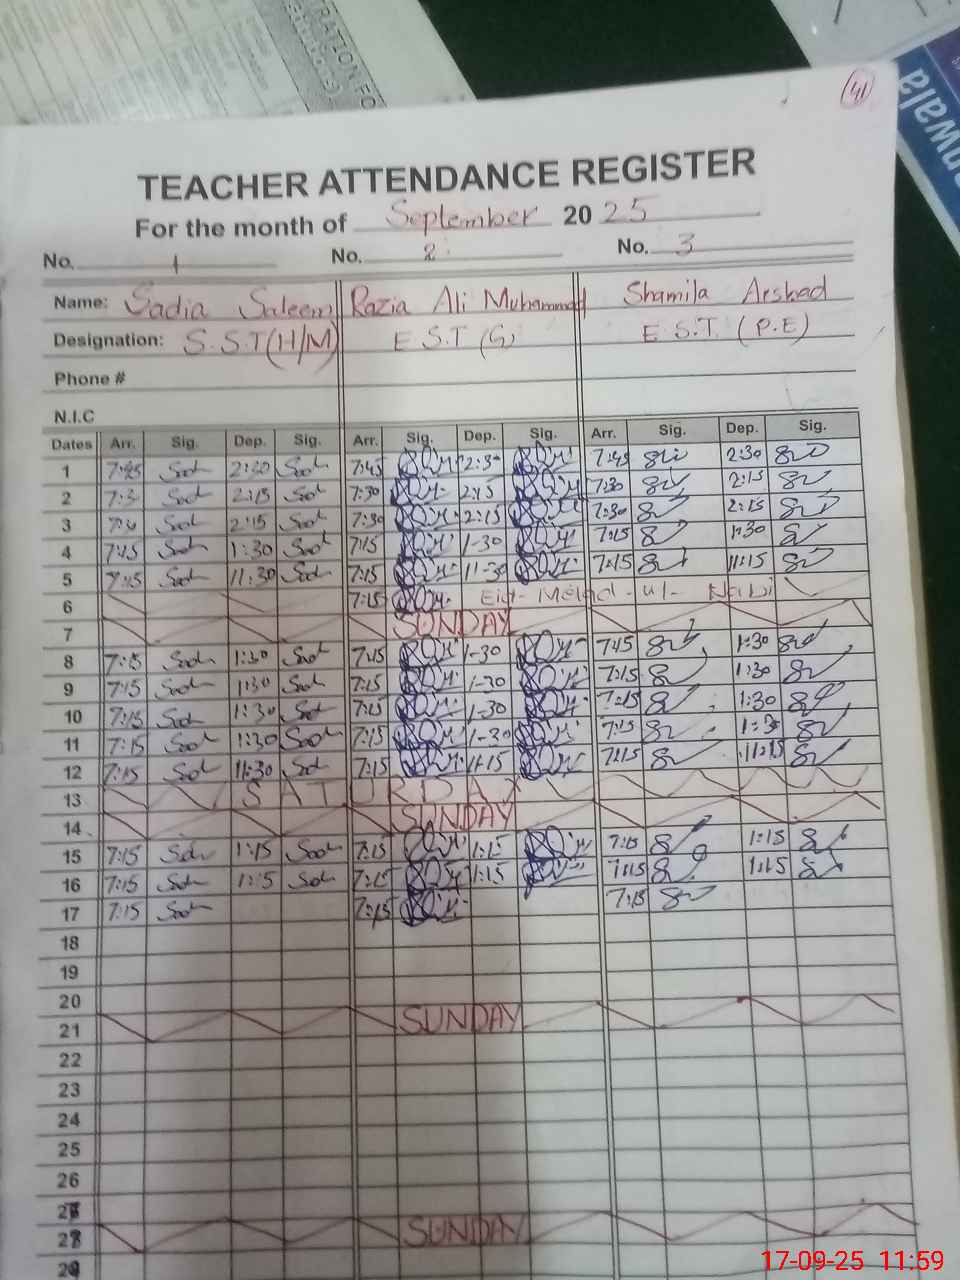 41
nwala
TEACHER ATTENDANCE REGISTER
For the month of September 20 25
No. 1 No. 2 No. 3
Name: Sadia Saleem Razia Ali Muhammad Shamila Arshad
Designation: S.S.T(H/M) E S.T (S) E S.T. (P.E)
Phone #
N.I.C
Dates Arr. Sig. Dep. Sig. Arr. Sig. Dep. Sig. Arr. Sig. Dep. Sig.
1 7:45 2:30 7:45 2:30 7:45 2:30
2 7:30 2:15 7:30 2:15 7:30 2:15
3 2:15 7:30 2:15 7:30 2:15
4 7:15 1:30 7:15 1-30 7:15 1:30
5 7:15 11:30 7:15 11-30 7:15 11:15
6 7:15 Eid- Melad -ul- Nabi
7 SUNDAY
8 7:15 1:30 7:15 1-30 7:15 1:30
9 7:15 1:30 7:15 1-30 7:15 1:30
10 7:15 1:30 7:15 1-30 7:15 1:30
11 7:15 1:30 7:15 1-30 7:15 1:30
12 7:15 11:30 7:15 11-15 7:15 11:15
13 SATURDAY
14 SUNDAY
15 7:15 1:15 7:15 1:15 7:15 1:15
16 7:15 1:15 7:15 1:15 7:15 1:15
17 7:15 7:15 7:15
18
19
20
21 SUNDAY
22
23
24
25
26
27
28 SUNDAY
17-09-25 11:59